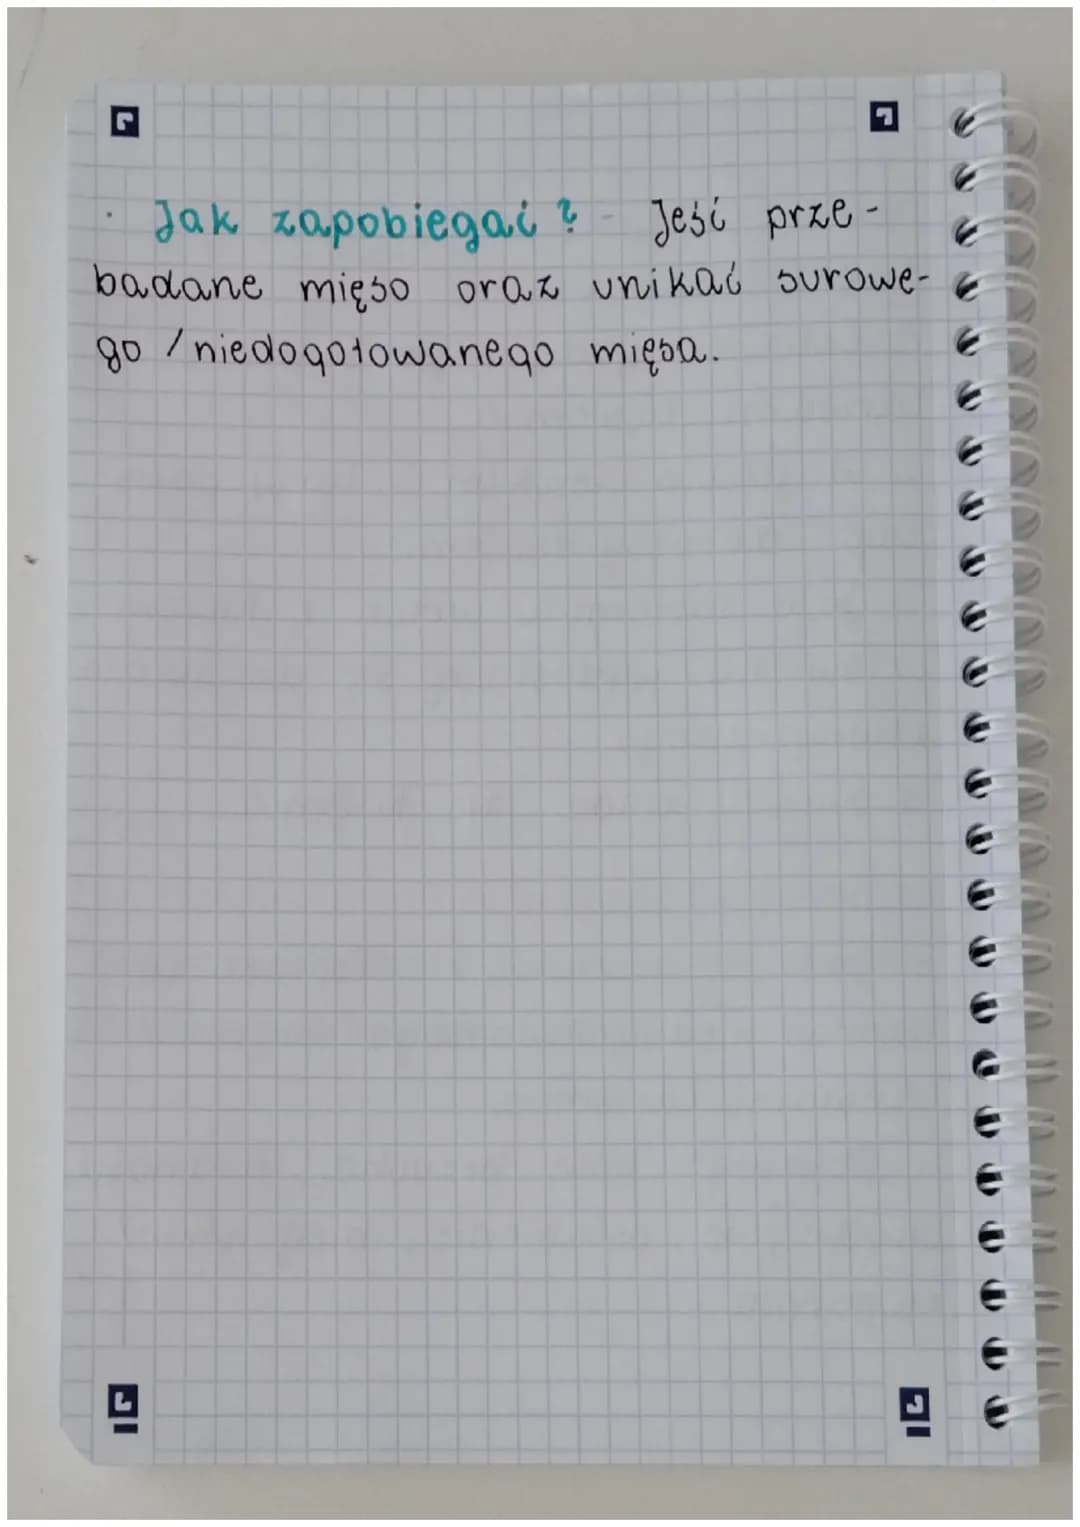 · Jak zapobiegać? - Jeść prze-
badane mięso oraz unikać surowe-
go / niedogotowanego mięsa.